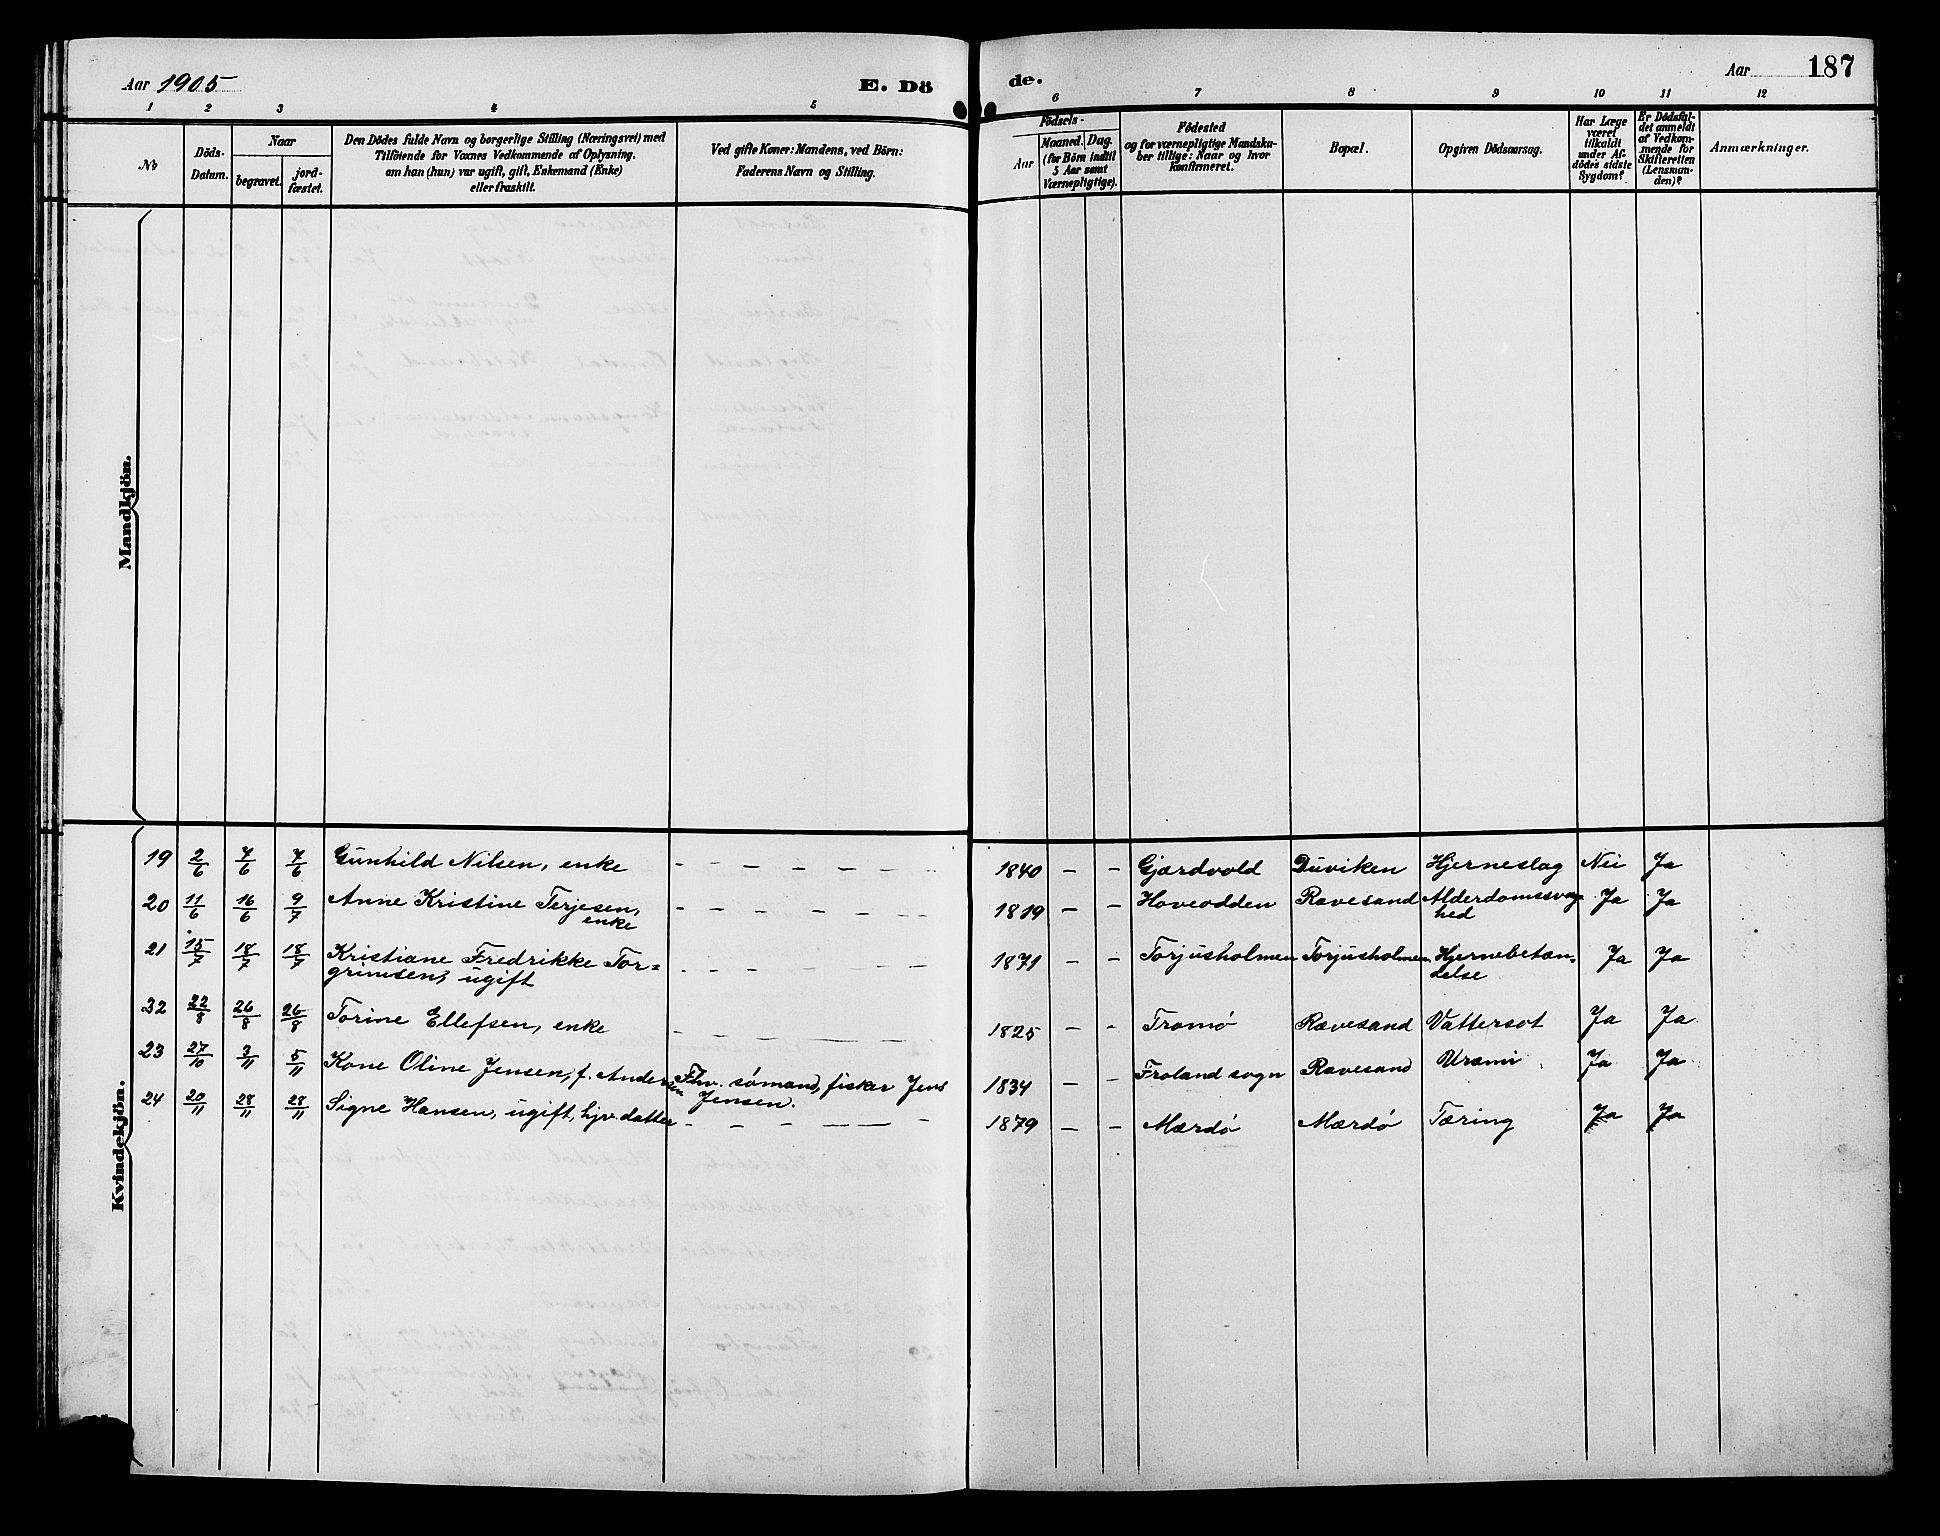 Aar 1905 E. Dö de. Aar 187
1 2 3 4 5 6 7 8 9 10 11 12
No
Döds-
Datum.
Naar
begravet.
jord-
fæstet.
Den Dödes fulde Navn og borgerlige Stilling (Næringsvei) med
Tilföiende for Voxnes Vedkommende af Oplysning,
om han (hun) var ugift, gift, Enkemand (Enke)
eller fraskilt.
Ved gifte Koner: Mandens, ved Börn:
Faderens Navn og Stilling.
Födsels-
Aar
Maaned. Dag.
(for Börn indtil
5 Aar samt
Værnepligtige).
Födested
og for værnepligtige Mandska-
ber tillige: Naar og hvor
konfirmeret.
Bopæl.
Opgiven Dödsaarsag.
Har Læge
været
tilkaldt
under Af-
dödes sidste
Sygdom?
Er Dödsfal-
det anmeldt
af Vedkom-
mende for
Skifteretten
(Lensman-
den)?
Anmærkninger.
Mandkjön.
Kvindekjön.
19 2/6 7/6 7/6 Gunhild Nilsen, enke - - - - - - 1840 - - Gjærdvold Duviken Hjerneslag Nei Ja
20 11/6 16/6 9/7 Anne Kristine Terjesen, - - - - - - 1819 - - Hoveodden Ravesand Alderdomssvag- Ja Ja
enke hed
21 15/7 18/7 18/7 Kristiane Fredrikke Tor= - - - - - - 1871 - - Torjusholmen Torjusholmen Hjernebetæn- Ja Ja
grimsen, ugift delse
32 22/8 26/8 26/8 Torine Ellefsen, enke - - - - - - 1825 - - Tromø Rævesand Vattersot Ja Ja
23 27/10 3/11 5/11 Kone Oline Jensen, f. Ander- Fhv. sømand, fisker Jens 1834 - - Froland sogn Ravesand Uræmi Ja Ja
sen Jensen.
24 20/11 28/11 28/11 Signe Hansen, ugift, hjv. datter - - - - - - 1879 - - Mærdø Mærdø Tæring Ja Ja